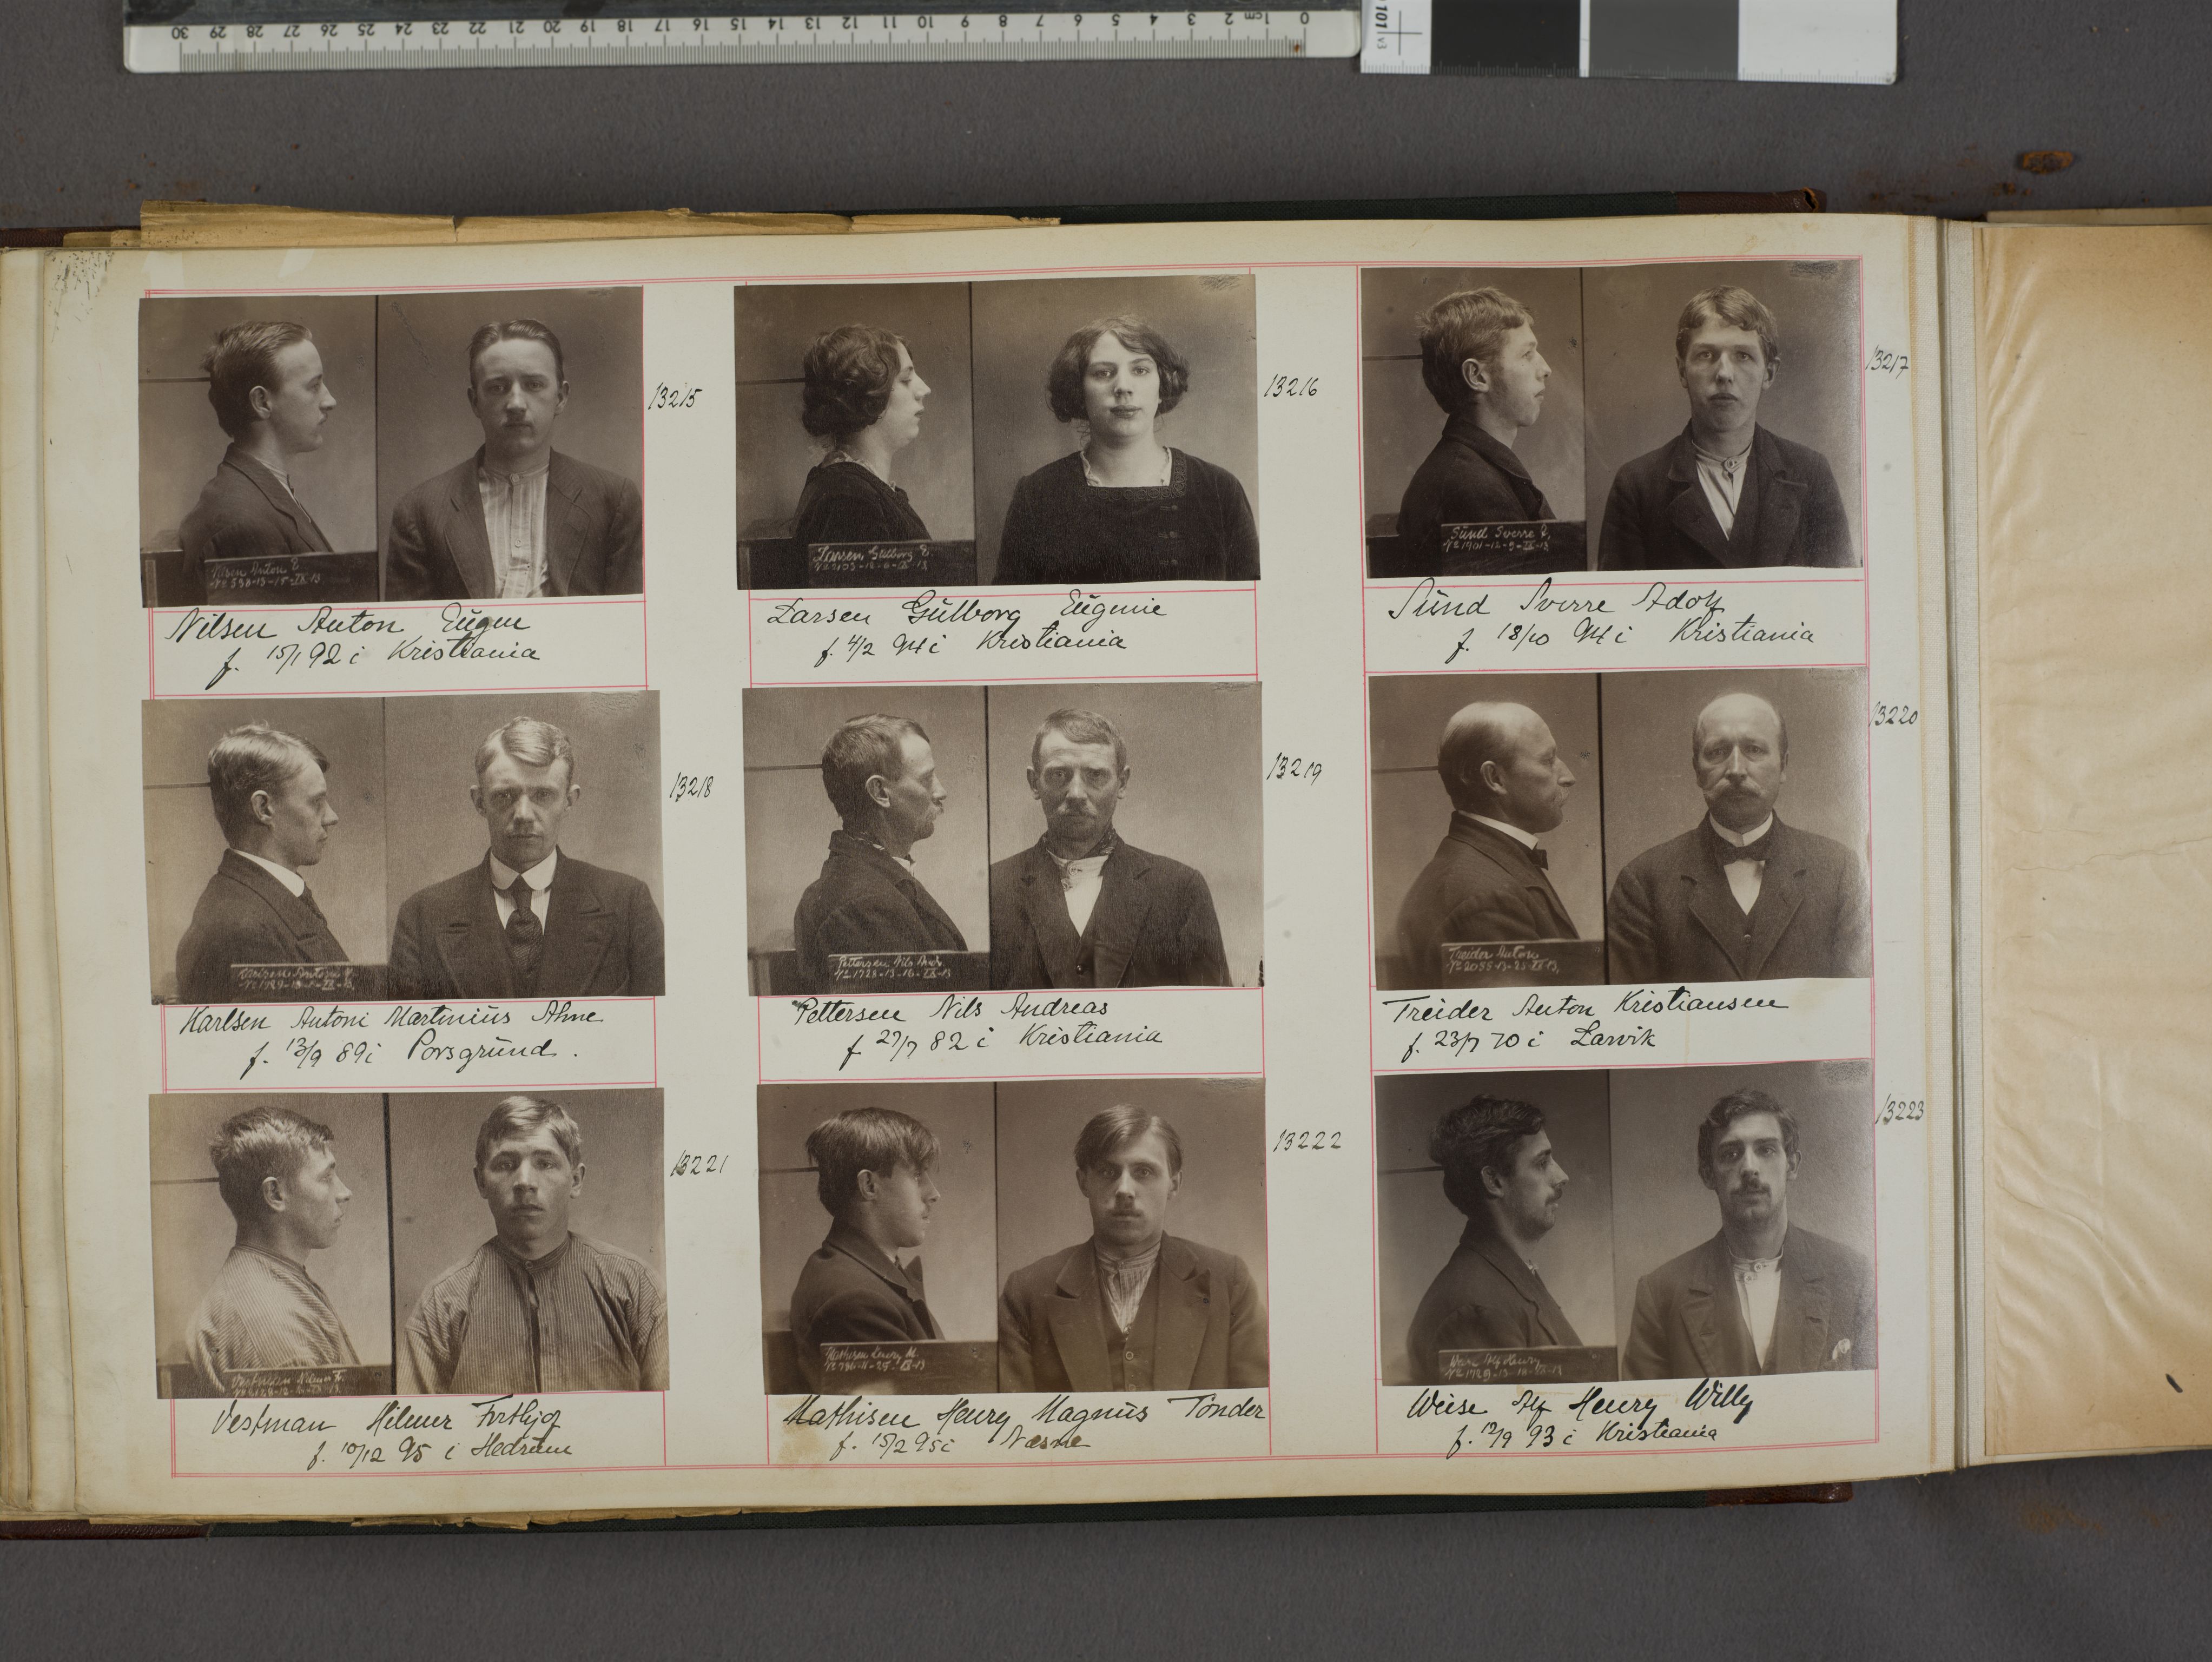 30 29 28 27 26 25 24 23 22 21 20 19 18 17 16 15 14 13 12 11 10 9 8 7 6 5 4 3 2 1cm 0
101 v3
13215
Nilsen Anton E
Nilsen Anton Eugen
f. 15/1 92 i Kristiania
13216
Larsen Gulborg E.
Larsen Gulborg Eugenie
f. 4/2 94 i Kristiania
13217
Sund Sverre
Nº 1901-12-9-IX-13
Sund Sverre Adolf
f. 18/10 94 i Kristiania
13218
Karlsen Antoni
Karlsen Antoni Martinius
f. 13/9 89 i Porsgrund.
13219
Pettersen Nils Andr.
Nº 1728-13-16-IX-13
Pettersen Nils Andreas
f. 27/7 82 i Kristiania
13220
Treider Anton
Nº 2055-13-23-IX-13
Treider Anton Kristiansen
f. 23/7 70 i Larvik
13221
Vestman Hilmer Fr.
Vestman Hilmer Frithjof
f. 10/12 95 i Hedrum
13222
Mathisen Henry M.
Mathisen Henry Magnus Tonder
f. 15/2 95 i Næsne
13223
Weise Alf Henry
Weise Alf Henry Willy
f. 12/9 93 i Kristiania